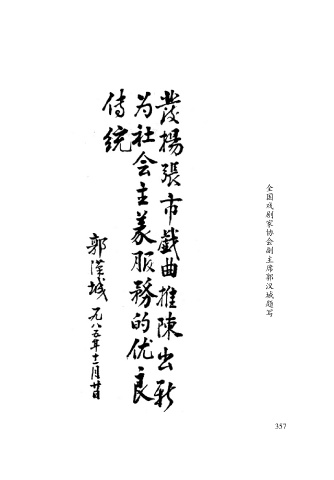 發揚張市戲曲推陳出新
为社会主義服務的优良
传统
郭漢城 一九八五年十一月廿日
全国戏剧家协会副主席郭汉城题写
357